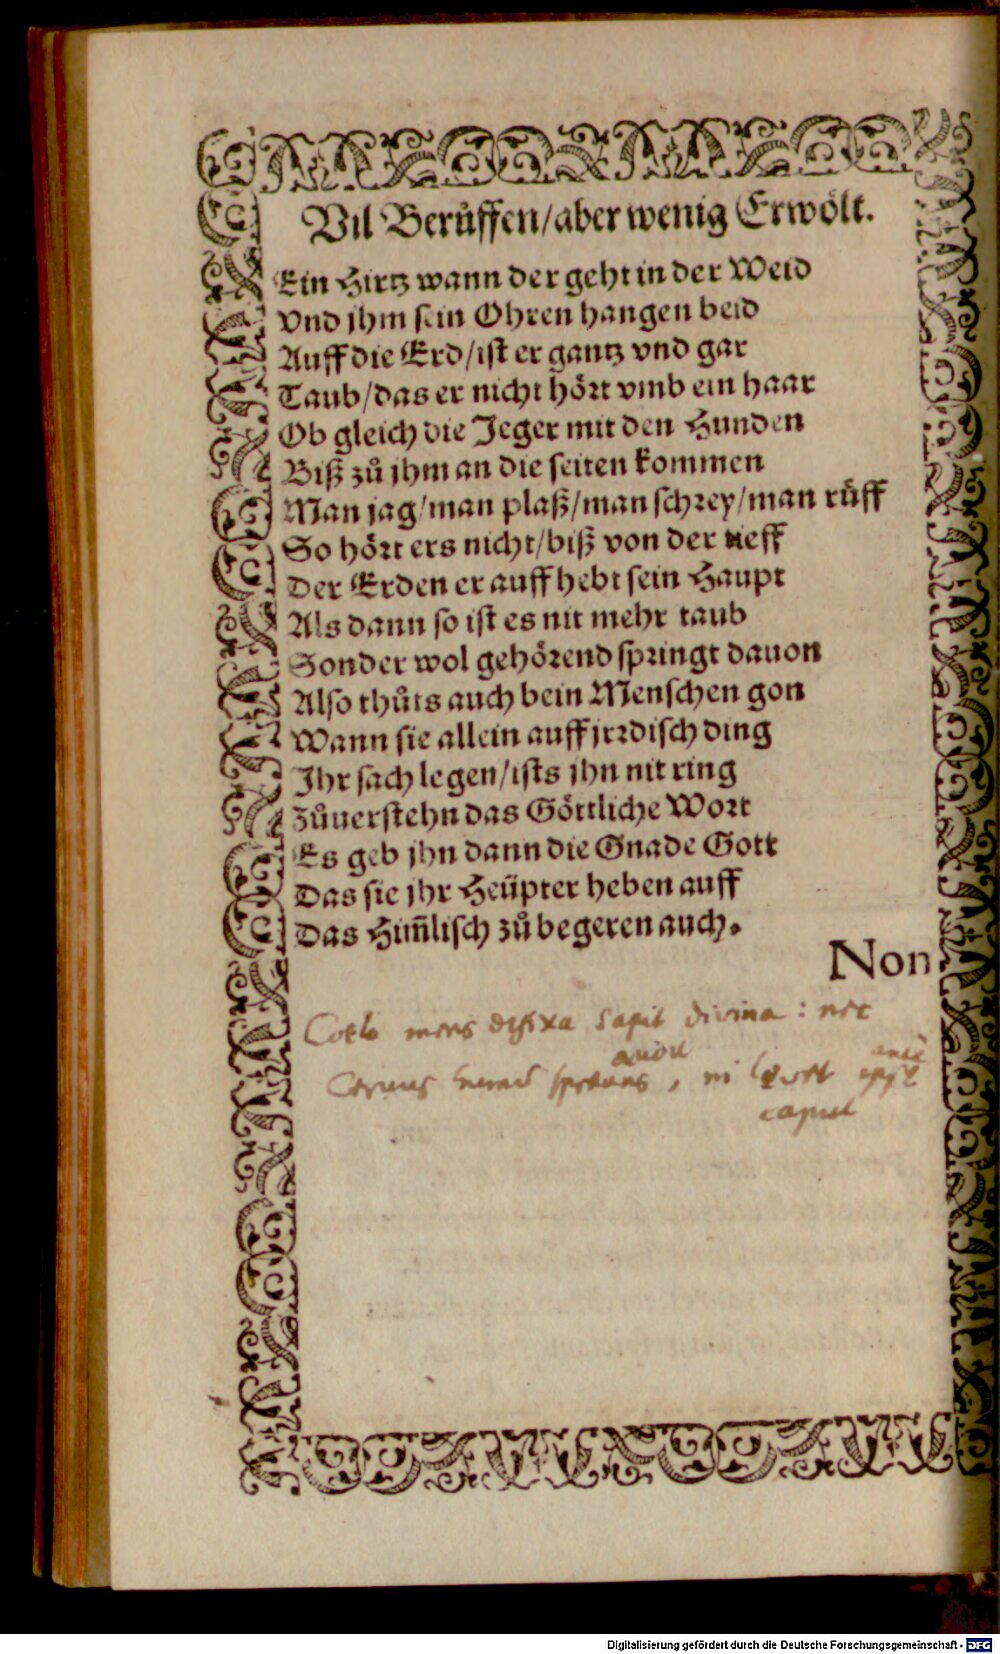 Vil Berůffen/aber wenig Erwölt.
Ein Hirtz wann der geht in der Weid
Vnd jhm sein Ohren hangen beid
Auff die Erd/ist er gantz vnd gar
Taub/das er nicht hört vmb ein haar
Ob gleich die Jeger mit den Hunden
Biß zů jhm an die seiten kommen
Man jag/man plaß/man schrey/man rüff
So hört ers nicht/biß von der tieff
Der Erden er auff hebt sein Haupt
Als dann so ist es nit mehr taub
Sonder wol gehörend springt dauon
Also thůts auch bein Menschen gon
Wann sie allein auff jrrdisch ding
Ihr sach legen/ists jhn nit ring
Zůuerstehn das Göttliche Wort
Es geb jhn dann die Gnade Gott
Das sie jhr Heüpter heben auff
Das Him̃lisch zů begeren auch.
Non
Coelo mens defixa sapit divina: nec
audit
Cervus humum spectans, ni levet ipse
caput